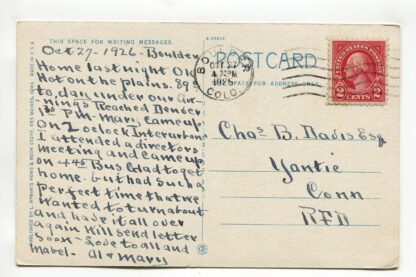 THIS SPACE FOR WRITING MESSAGES.
A-93412
POST CARD
SPACE FOR ADDRESS ONLY.
Oct 27-1926-Boulder
Home last night OK
Hot on the plains. 89°
to day under our Aw-
nings Reached Denver
1³⁰ Pm. Mary Came up
on 2 oclock Interurban
I attended a directors
meeting and came up
on 4⁴⁵ Bus Glad to get
home - but had such a
perfect time that we
wanted to turn about
and have it all over
again Will send letter
soon - Love to all and
Mabel - Al & Mary
BO
OCT 27
4 30PM
1926
COLO.
UNITED STATES POSTAGE
2 CENTS 2
Chas B. Davis Esq
Yantic
Conn
RFD
MADE IN U.S.A.